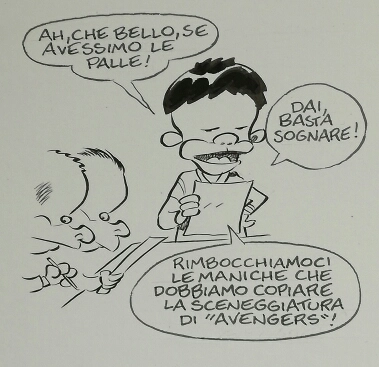 AH, CHE BELLO, SE
AVESSIMO LE
PALLE!
DAI,
BASTA
SOGNARE!
RIMBOCCHIAMOCI
LE MANICHE CHE
DOBBIAMO COPIARE
LA SCENEGGIATURA
DI "AVENGERS"!